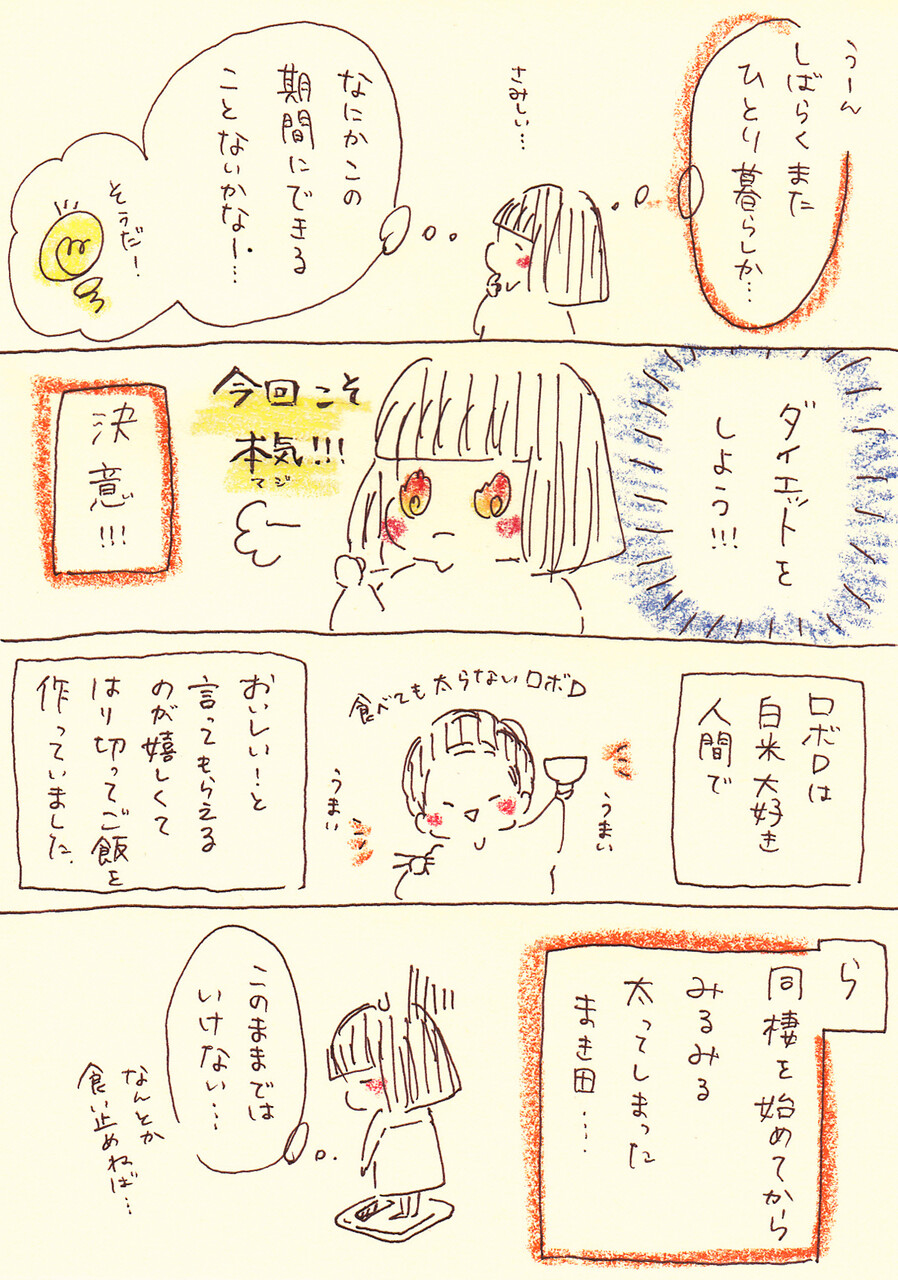 うーん
しばらくまた
ひとり暮らしか…
さみしい…
なにかこの
期間にできる
ことないかなー…
そうだ!
ダイエットを
しよう!!!
今回こそ
本気!!!
マジ
決意!!!
ロボDは
白米大好き
人間で
食べても太らないロボD
うまい
うまい
おいしい!と
言ってもらえる
のが嬉しくて
はり切ってご飯を
作っていました。
ら
同棲を始めてから
みるみる
太ってしまった
まき田…
このままでは
いけない…
なんとか
食い止めねば…